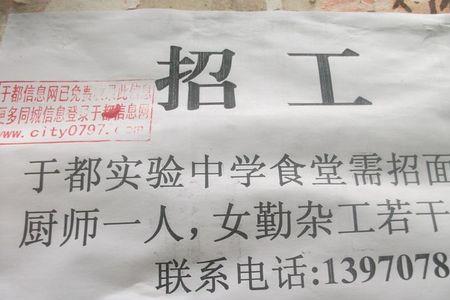 招工
于都信息网已免费 此信息
更多同城信息登录于都信息网
www.city0797.com
于都实验中学食堂需招面
厨师一人，女勤杂工若干
联系电话:1397078